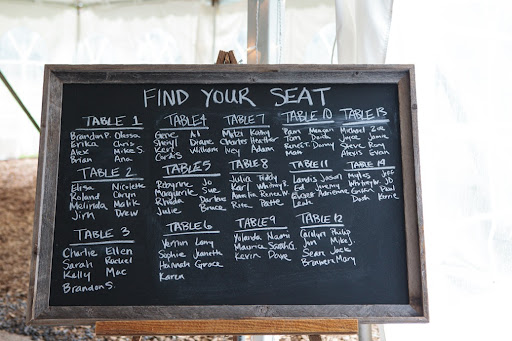 FIND YOUR SEAT
TABLE 1
Brandon P. Olessa
Erika Chris
Alex Mike S.
Brian Ana
TABLE 2
Elisa Nicolette
Roland Caryn
Malinda Malik
Jim Drew
TABLE 3
Charlie Ellen
Sarah Rachel
Kelly Mac
Brandon S.
TABLE 4
Gene Al
Sheryl Drape
Keri William
Curtis
TABLE 5
Marguerite Sue
Rhonda Darlene
Julie Bruce
TABLE 6
Vernin Lany
Sophie Jeanette
Hannah Grace
Karen
TABLE 7
Mytzi Kathy
Charles Heather
Ivey Adam
TABLE 8
Julia Teddy
Karl Whitney R.
Rita Pette
TABLE 9
Yolanda Naomi
Maurice Sarah G.
Kevin Dave
TABLE 10
Pam Meagan
Tom
Danny
Matt
TABLE 11
Landis Jason
Ed Jeremy
Adrienne
Leah
TABLE 12
Carolyn Philip
Jon Mike J.
Sean Jackie
Mary
TABLE 13
Michael Zoe
Joyce Jamie
Steve Rory
Alexis Evan
TABLE 14
Myles Joe
Paul
Dan Kerrie